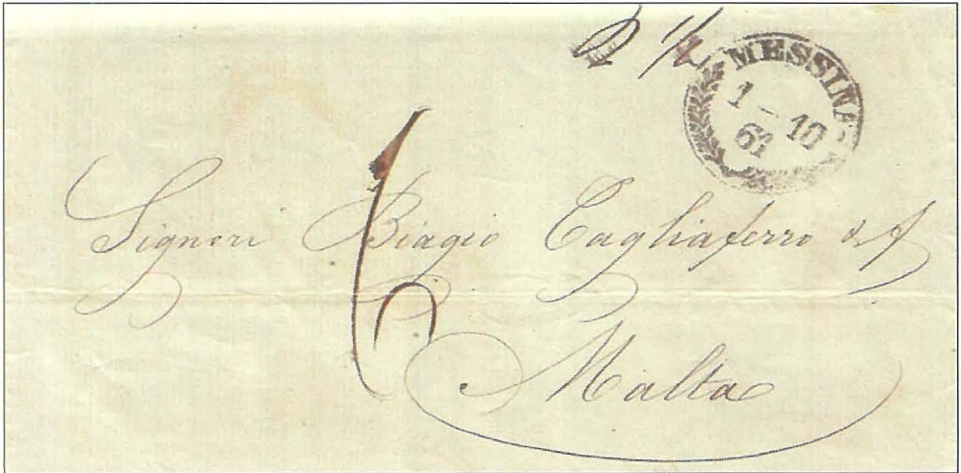 2 1/2
MESSINA
1 — 10
61
6
Signori Biagio Tagliaferro & f
Malta